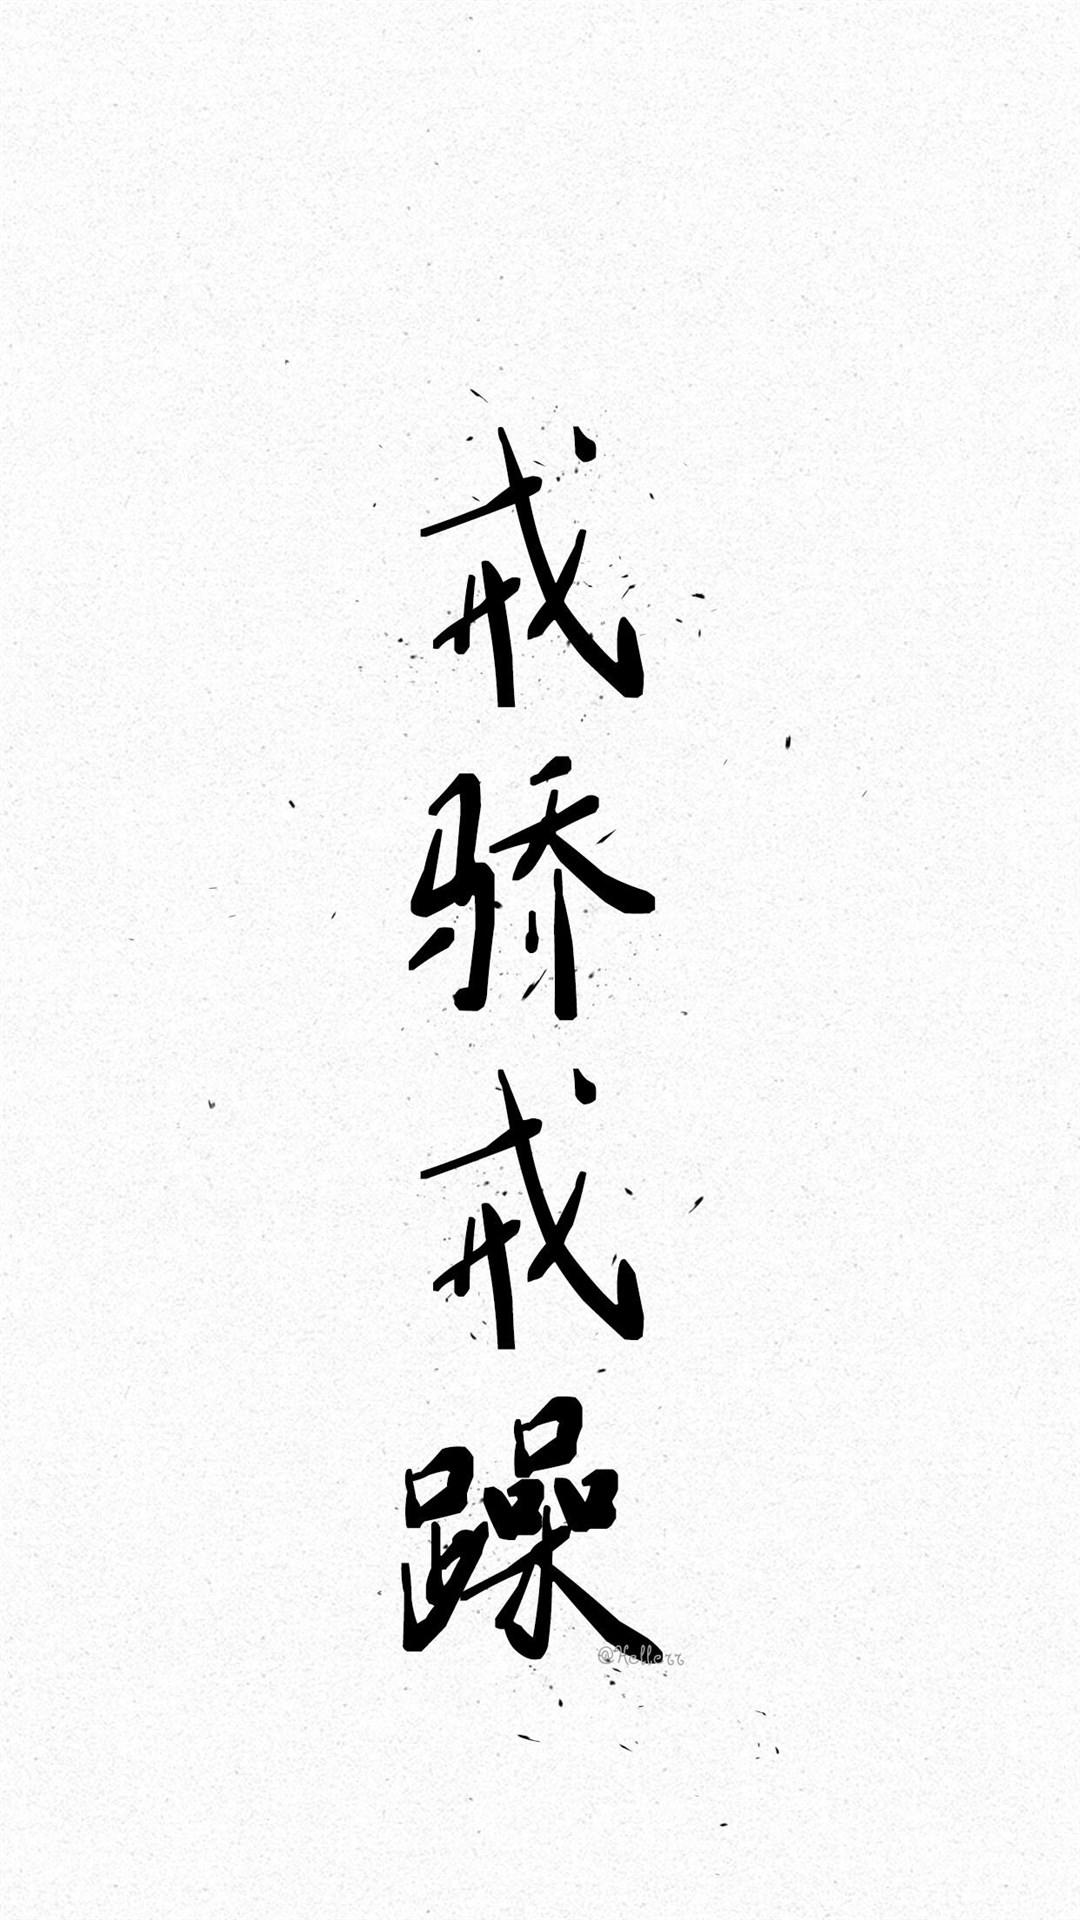 戒骄戒躁
@Hellerr